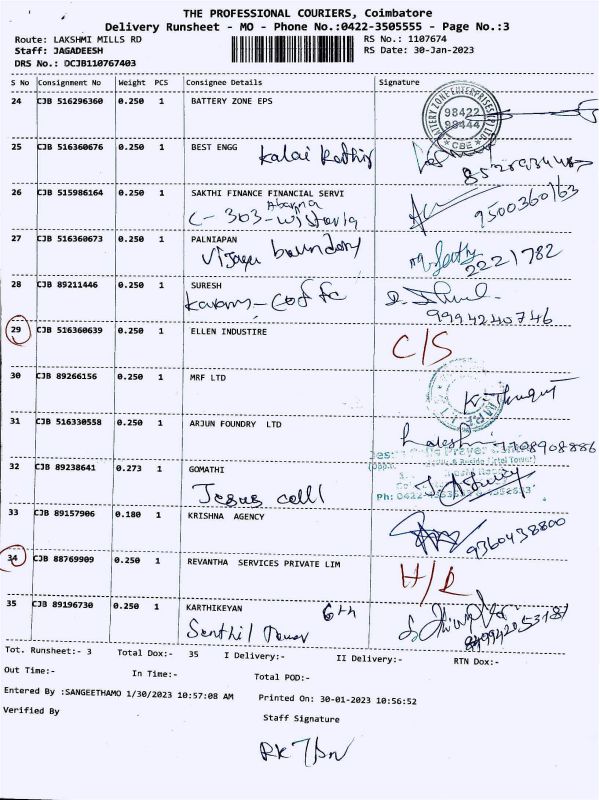 THE PROFESSIONAL COURIERS, Coimbatore
Delivery Runsheet - MO - Phone No.:0422-3505555 - Page No.:3
Route: LAKSHMI MILLS RD RS No.: 1107674
Staff: JAGADEESH RS Date: 30-Jan-2023
DRS No.: DCJB110767403
S No Consignment No Weight PCS Consignee Details Signature
24 CJB 516296360 0.250 1 BATTERY ZONE EPS
BATTERY ZONE ENTERPRISES
98422
98444
CBE
25 CJB 516360676 0.250 1 BEST ENGG
26 CJB 515986164 0.250 1 SAKTHI FINANCE FINANCIAL SERVI
C- 303- 9500360763
27 CJB 516360673 0.250 1 PALNIAPAN
boundary 2221782
28 CJB 89211446 0.250 1 SURESH
9994240746
29 CJB 516360639 0.250 1 ELLEN INDUSTIRE
C/S
30 CJB 89266156 0.250 1 MRF LTD
31 CJB 516330558 0.250 1 ARJUN FOUNDRY LTD
7708908886
32 CJB 89238641 0.273 1 GOMATHI
Jesus call
33 CJB 89157906 0.180 1 KRISHNA AGENCY
9360438800
34 CJB 88769909 0.250 1 REVANTHA SERVICES PRIVATE LIM
35 CJB 89196730 0.250 1 KARTHIKEYAN 6th
Senthil Tower
Tot. Runsheet:- 3 Total Dox:- 35 I Delivery:- II Delivery:- RTN Dox:-
Out Time:- In Time:- Total POD:-
Entered By :SANGEETHAMO 1/30/2023 10:57:08 AM Printed On: 30-01-2023 10:56:52
Verified By Staff Signature